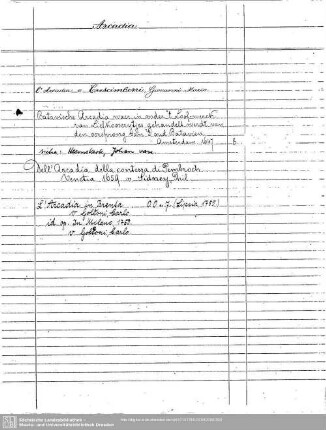 Arcadia
L'Arcadia v. Crescimbeni, Giovanni Mario
Batavische Arcadia, waer in onder 't Loof-werck
van Liefkooserytje gehandelt wordt van
den oorsprong van 't oud Batavien
Amsterdam 1647 8.
siehe: Heemskerk, Johan van
Dell' Arcadia della contessa di Pembroch
Venetia 1659 v Sidney Phil.
L'Arcadia in Brenta O.O. u. J. (Lipsia 1752)
v Goldoni, Carlo
id. op. In Milano, 1750.
v Goldoni, Carlo
Sächsische Landesbibliothek -
Staats- und Universitätsbibliothek Dresden